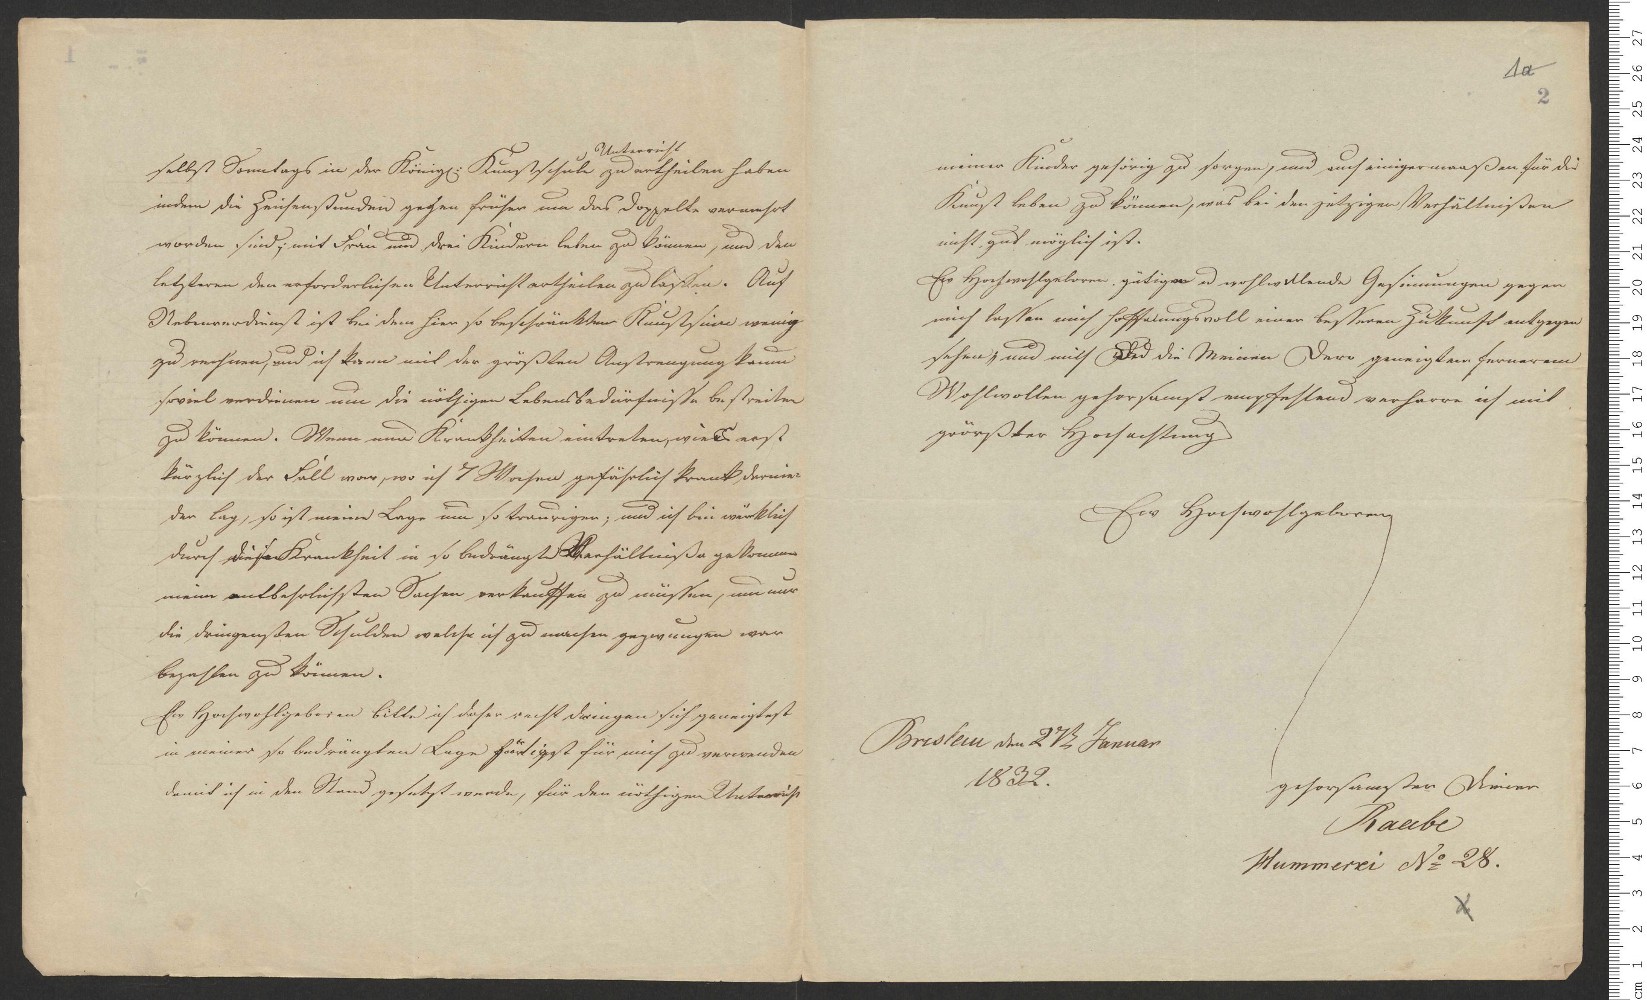 Unterricht
selbst Sonntags in der Königl: Kunstschule zu ertheilen haben
indem die Zeichenstunden gegen früher um das Doppelte vermehrt
worden sind; mit Frau und drei Kindern leben zu können, und den
letzteren den erforderlichen Unterricht ertheilen zu lassen. Auf
Nebenverdienst ist bei dem hier so beschränkten Kunstsinn wenig
zu rechnen, und ich kann mit der größten Anstrengung kaum
soviel verdienen um die nöthigen Lebensbedürfnisse bestreiten
zu können. Wenn nun Krankheiten eintreten, wie es erst
kürzlich der Fall war, wo ich 7 Wochen gefährlich krank darnie-
der lag, so ist meine Lage um so trauriger; und ich bin würklich
durch diese Krankheit in so bedrängte Verhältniße gekommen
meine entbehrlichsten Sachen verkauffen zu müssen, um nur
die dringensten Schulden welche ich zu machen gezwungen war
bezahlen zu können.
Ew Hochwohlgeboren bitte ich daher recht dringen sich geneigtest
in meiner so bedrängten Lage gütigst für mich zu verwenden
damit ich in den Stand gesetzt werde, für den nöthigen Unterricht
1a
2
meiner Kinder gehörig zu sorgen, und auch einigermaaßen für die
Kunst leben zu können, was bei den jetzigen Verhältnißen
nicht gut möglich ist.
Ew Hochwohlgeboren gütigen u wohlwollende Gesinnungen gegen
mich lassen mich hoffnungsvoll einer besseren Zukunft entgegen
sehen, und mich und die Meinen Dero geneigten fernerem
Wohlwollen gehorsamst empfehlend verharre ich mit
größter Hochachtung
Ew Hochwohlgeboren
Breslau den 27t Januar
1832.
gehorsamster Diener
Raabe
Hummerei No 28.